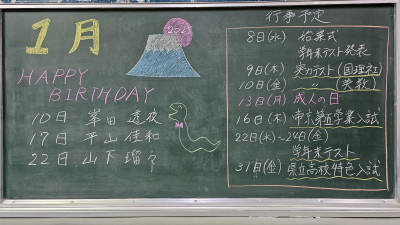 1月
2025
HAPPY
BIRTHDAY
10日 峯田 透夜
17日 平山 佳和
22日 山下 瑠々
行事予定
8日(水) 始業式
学年末テスト発表
9日(木) 実力テスト(国理社)
10日(金) 〃 (英数)
13日(月) 成人の日
16日(木) 帝京第五学業入試
22日(水)~24日(金)
学年末テスト
31日(金) 県立高校特色入試